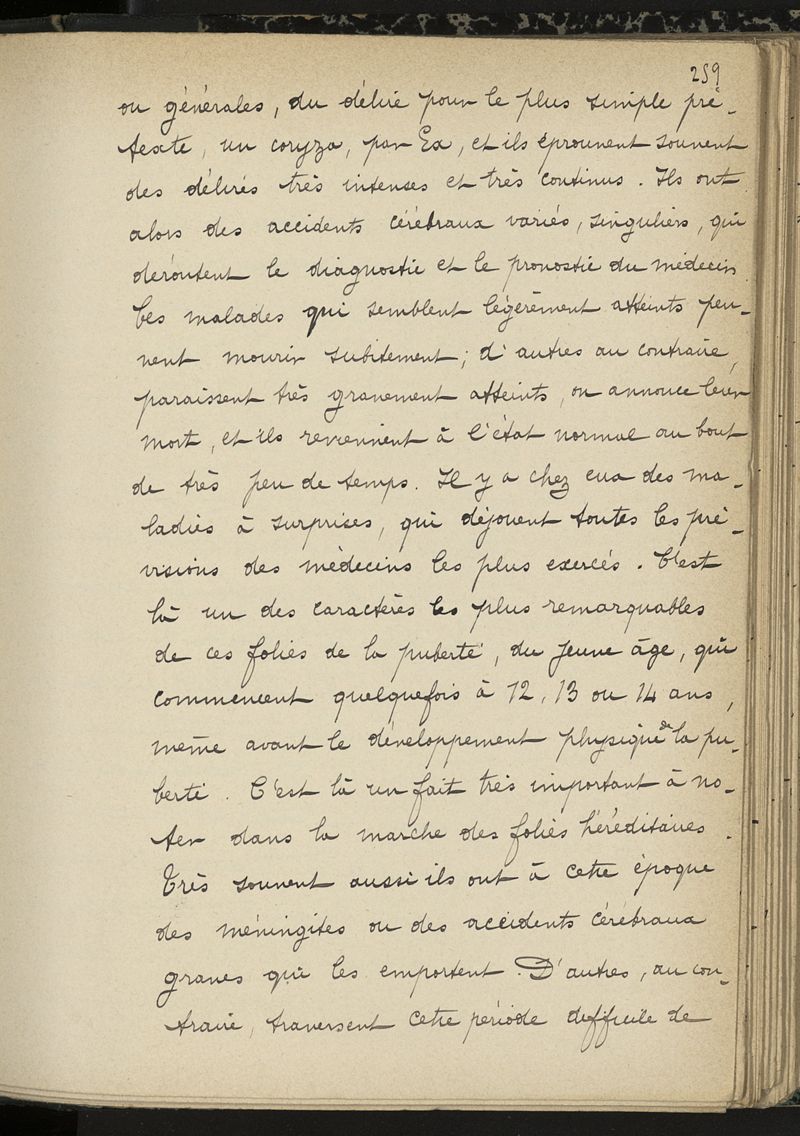 259
ou générales, du délire pour le plus simple pré-
texte, un coryza, par Ex, et ils éprouvent souvent
des délires très intenses et très continus. Ils ont
alors des accidents cérébraux variés, singuliers, qui
déroutent le diagnostic et le pronostic du médecin.
Ces malades qui semblent légèrement atteints peu-
vent mourir subitement; d'autres au contraire,
paraissent très gravement atteints, on annonce leur
mort, et ils reviennent à l'état normal au bout
de très peu de temps. Il y a chez eux des ma-
ladies à surprises, qui déjouent toutes les pré-
visions des médecins les plus exercés. C'est
là un des caractères les plus remarquables
de ces folies de la puberté, du jeune âge, qui
commencent quelquefois à 12, 13 ou 14 ans,
même avant le développement physique de la pu-
berté. C'est là un fait très important à no-
ter dans la marche des folies héréditaires.
Très souvent aussi ils ont à cette époque
des méningites ou des accidents cérébraux
graves qui les emportent. D'autres, au con-
traire, traversent cette période difficile de